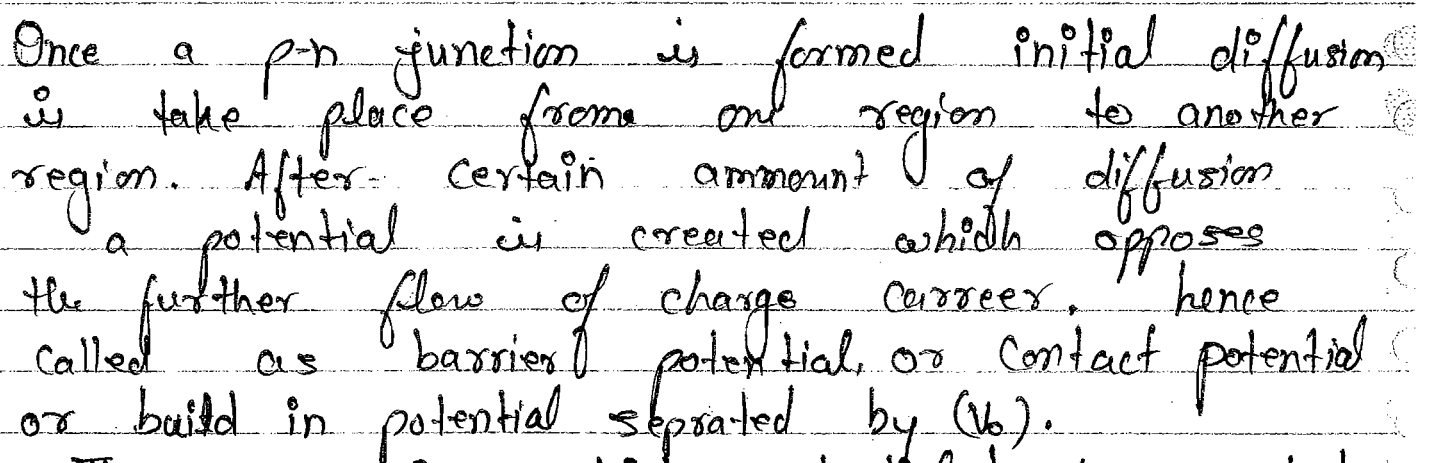 Once a p-n junction is formed initial diffusion
is take place frome one region to another
region. After certain ammount of diffusion
a potential is created which opposes
the further flow of charge carreer, hence
called as barrier potential, or Contact potential
or build in potential seprated by (V₀).